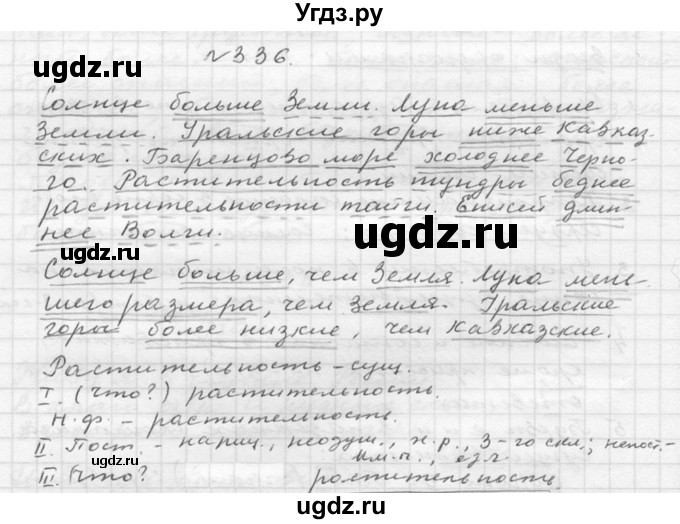 Угдз.ру
№336.
Солнце больше Земли. Луна меньше
Земли. Уральские горы ниже Кавказ-
ских. Баренцово море холоднее Черно-
го. Растительность тундры беднее
растительности тайги. Енисей длин-
нее Волги.
Солнце больше, чем Земля. Луна мень-
шего размера, чем Земля. Уральские
горы более низкие, чем Кавказские.
Растительность – сущ.
I. (Что?) растительность.
Н.ф. – растительность.
II Пост. – нариц., неодуш., ж.р., 3-го скл.; непост.–
им.п., ед.ч.
III. Что? растительность
ugdz.ru
ugdz.ru
ugdz.ru
ugdz.ru
ugdz.ru
ugdz.ru
ugdz.ru
ugdz.ru
ugdz.ru
Угдз.ру